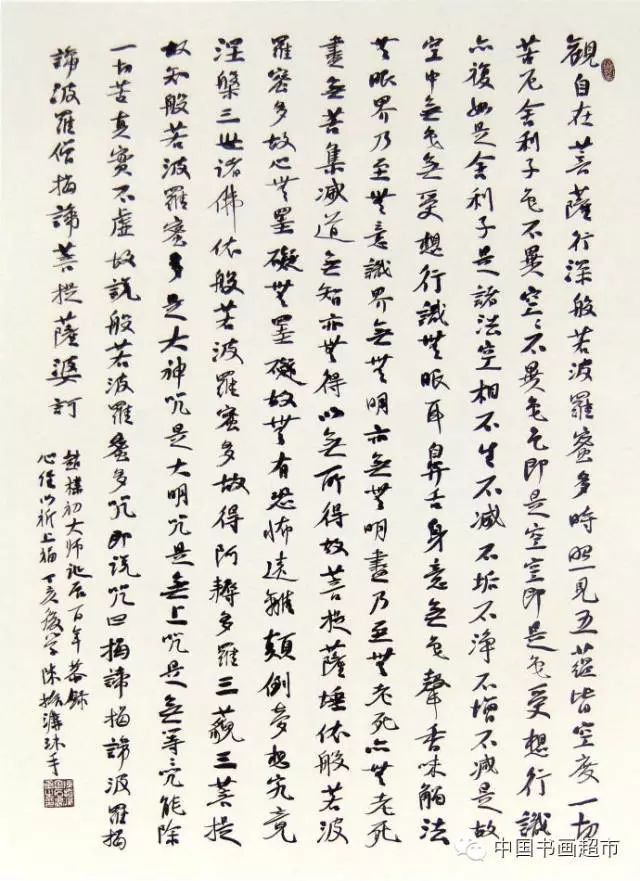 觀自在菩薩行深般若波羅蜜多時照見五蘊皆空度一切
苦厄舍利子色不異空〻不異色色即是空空即是色受想行識
亦復如是舍利子是諸法空相不生不减不垢不净不增不减是故
空中無色無受想行識無眼耳鼻舌身意無色聲香味觸法
無眼界乃至無意識界無無明亦無無明盡乃至無老死亦無老死
盡無苦集减道無智亦無得以無所得故菩提薩埵依般若波
羅蜜多故心無罣礙無罣礙故無有恐怖遠離顛倒夢想究竟
涅槃三世諸佛依般若波羅蜜多故得阿耨多羅三藐三菩提
故知般若波羅蜜多是大神咒是大明咒是無上咒是無等咒能除
一切苦真實不虛故說般若波羅蜜多咒即說咒曰揭諦揭諦波羅揭
諦波羅僧揭諦菩提薩婆訶
趙樸初大師誕辰百年恭録
心經以祈上福丁亥後學陳振濂沐手
中国书画超市